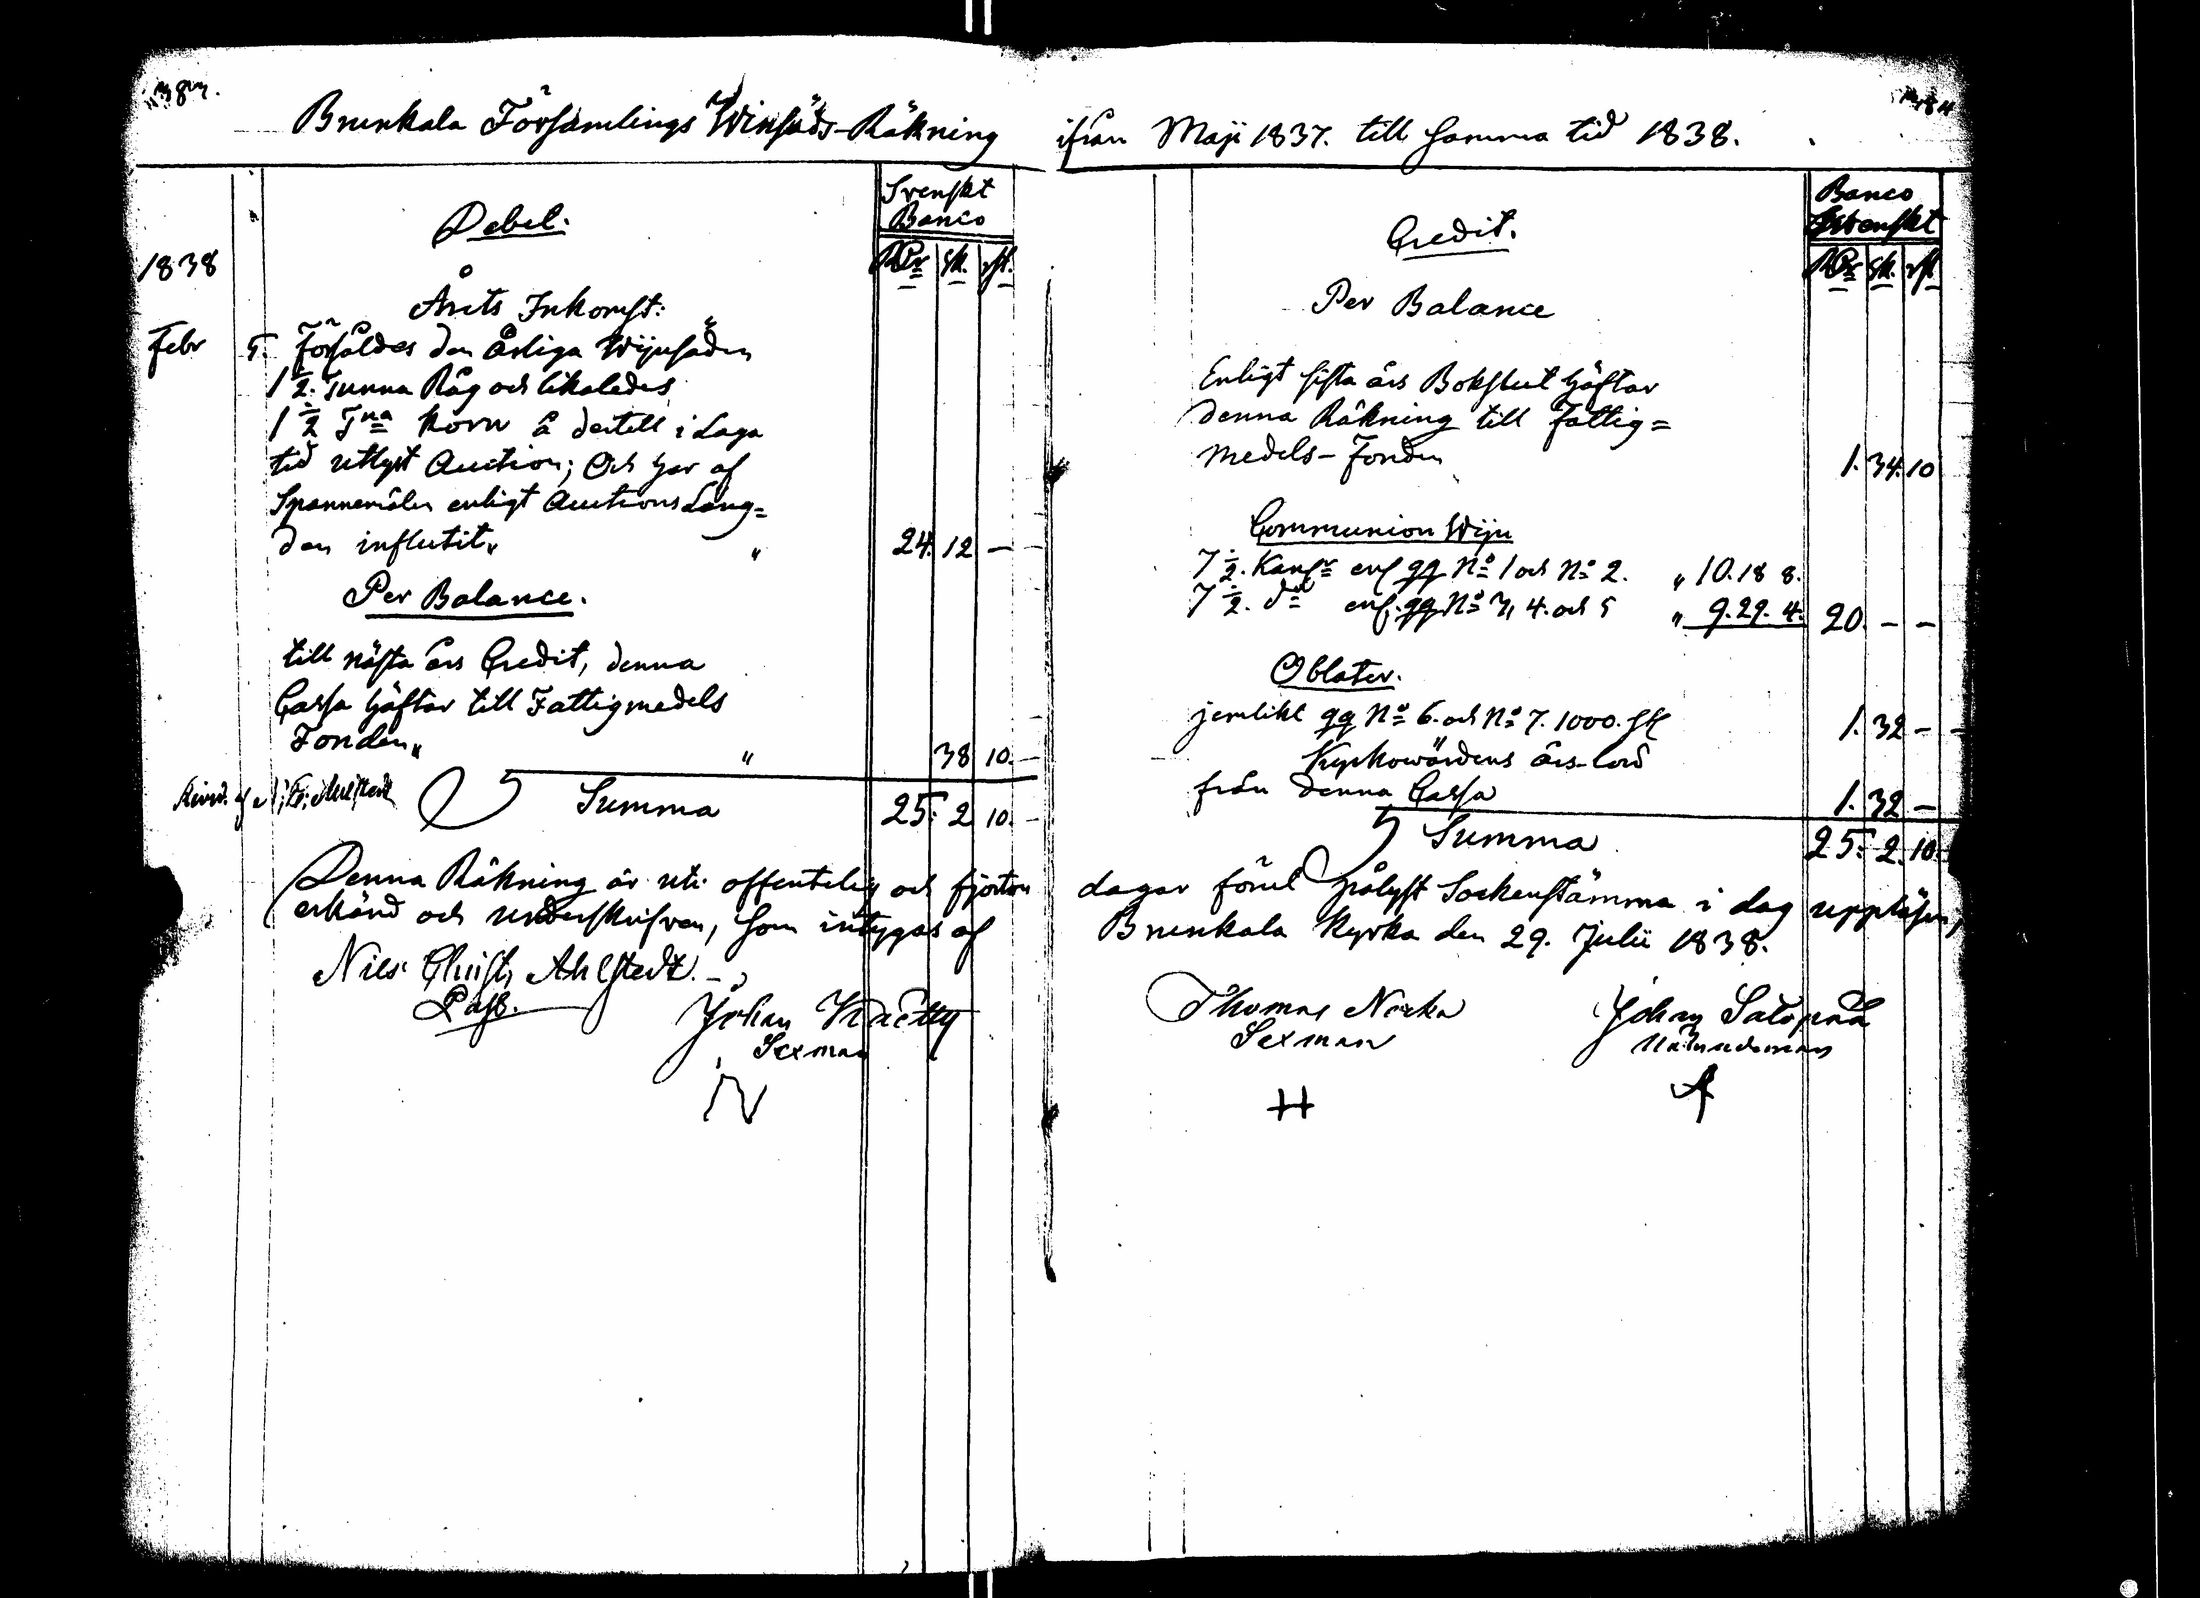 383.
Brunkala Församlings Winsäds-Räkning
Svenskt
Banco
Debet.
RDr sk. rst.
1838
Årets Inkomst:
Febr 5. Försåldes den Årliga Wijnsäden
1 1/2. Tunna Råg och likaledes
1 1/2 Tna Korn å dertill i Laga
tid utlyst Auction; Och har af
Spannemålen enligt Auctions Läng=
den influtit „ „ 24. 12 —
Per Balance.
till nästa års Credit, denna
Cassa häftar till Fattigmedels
Fonden „ „ 38 10. —
Summa 25. 2 10. —
Denna Räkning är uti offentelig och fjorton
erkänd och underskrifven, som intygas af
Nils Christ. Ahlstedt.
Past.
Johan
Sexman
N
ifrån Maji 1837. till samma tid 1838.
Banco
Svenskt
Credit.
RDr sk. rst
Per Balance
Enligt sista års Bokslut häftar
denna Räkning till Fattig=
medels-Fonden 1. 34. 10
Communion Wijn
7 1/2. Kanr enl qq No 1 och No 2. „ 10. 18 8.
7 1/2. do enl. qq No 3, 4. och 5 „ 9. 29. 4. 20. — —
Oblater.
jemlikt qq No 6. och No 7. 1000. st 1. 32 —
Kyrkowärdens års-lön
från denna Cassa 1. 32 —
Summa 25. 2. 10.
dagar förut pålyst Sockenstämma i dag uppläsen,
Brunkala Kyrka den 29. Julii 1838.
Thomas Nerka
Sexman
H
Johan
A